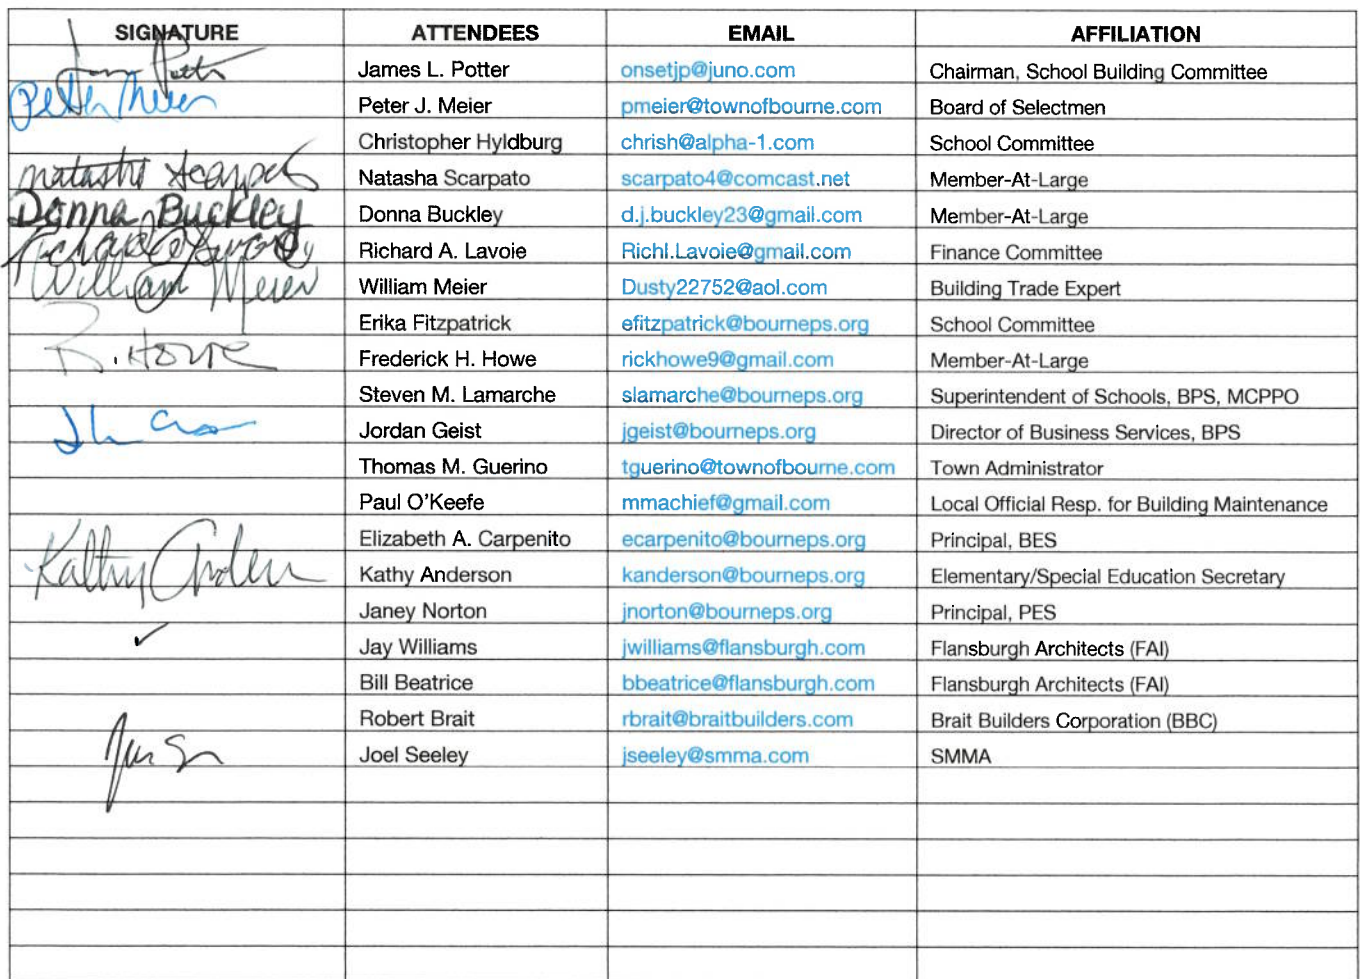 SIGNATURE ATTENDEES EMAIL AFFILIATION
James L. Potter onsetjp@juno.com Chairman, School Building Committee
Peter Meier Peter J. Meier pmeier@townofbourne.com Board of Selectmen
Christopher Hyldburg chrish@alpha-1.com School Committee
Natasha Scarpato Natasha Scarpato scarpato4@comcast.net Member-At-Large
Donna Buckley Donna Buckley d.j.buckley23@gmail.com Member-At-Large
Richard A. Lavoie Richl.Lavoie@gmail.com Finance Committee
William Meier William Meier Dusty22752@aol.com Building Trade Expert
Erika Fitzpatrick efitzpatrick@bourneps.org School Committee
R. Howe Frederick H. Howe rickhowe9@gmail.com Member-At-Large
Steven M. Lamarche slamarche@bourneps.org Superintendent of Schools, BPS, MCPPO
Jordan Geist jgeist@bourneps.org Director of Business Services, BPS
Thomas M. Guerino tguerino@townofbourne.com Town Administrator
Paul O'Keefe mmachief@gmail.com Local Official Resp. for Building Maintenance
Elizabeth A. Carpenito ecarpenito@bourneps.org Principal, BES
Kathy Kathy Anderson kanderson@bourneps.org Elementary/Special Education Secretary
Janey Norton jnorton@bourneps.org Principal, PES
✓ Jay Williams jwilliams@flansburgh.com Flansburgh Architects (FAI)
Bill Beatrice bbeatrice@flansburgh.com Flansburgh Architects (FAI)
Robert Brait rbrait@braitbuilders.com Brait Builders Corporation (BBC)
Joel Seeley jseeley@smma.com SMMA